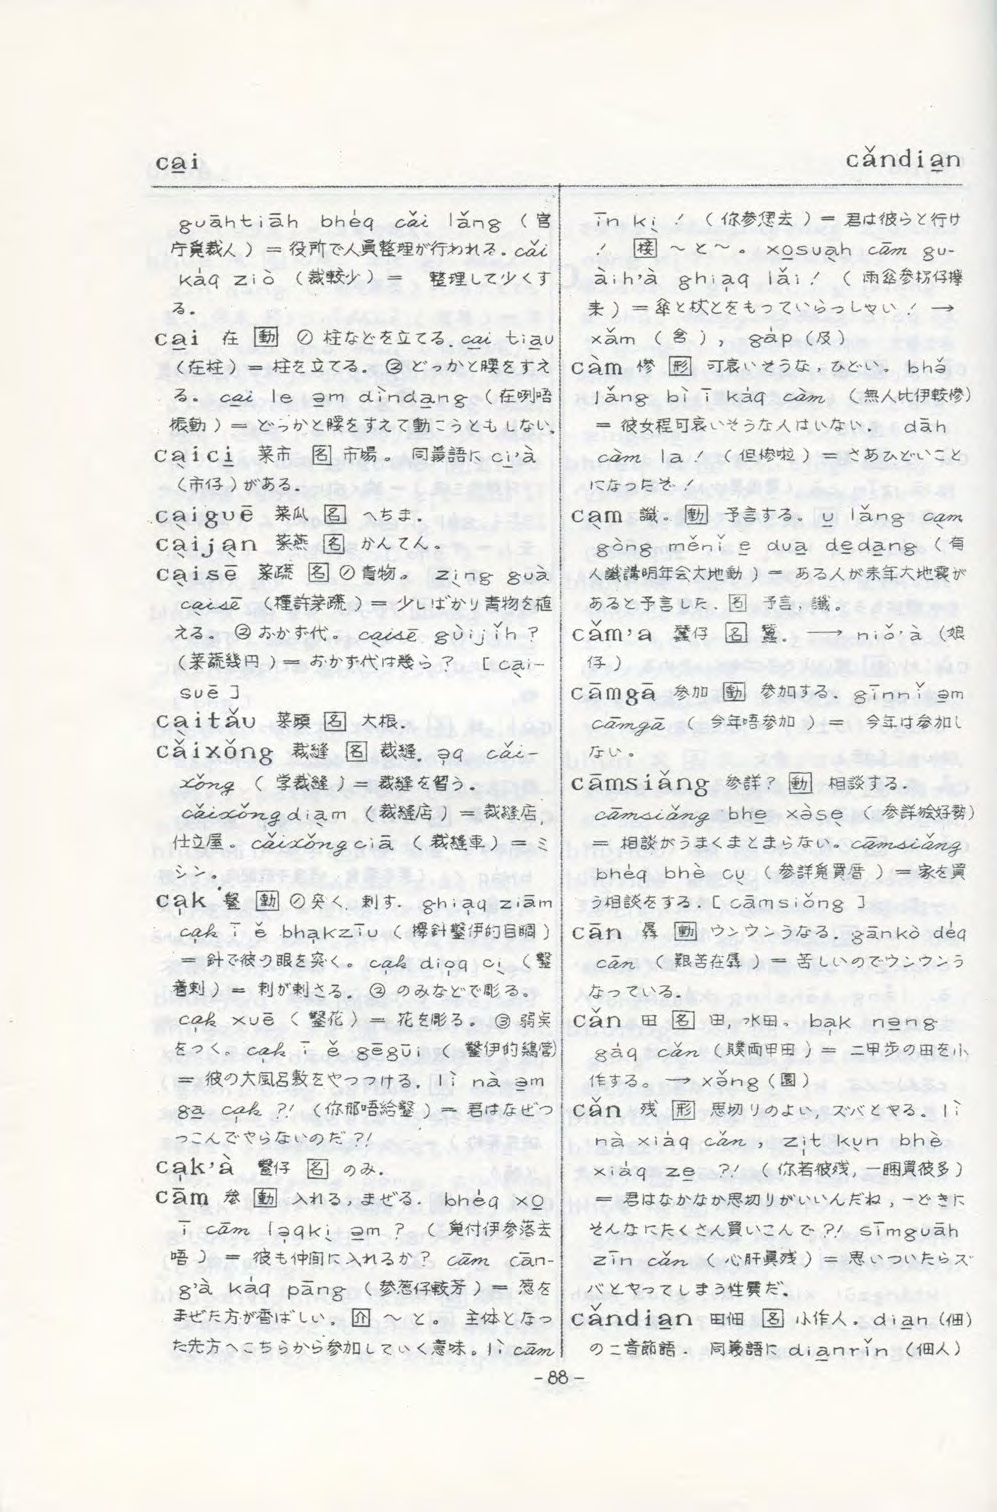 ca̱i
cǎndia̱n
guāhtiāh bhéq cǎi lǎng (官
庁覓裁人) = 役所で人員整理が行われる. cǎi
káq ziò (裁較少) = 整理して少くす
る。
ca̱i 在 [動] ① 柱などを立てる. ca̱i tia̱u
(在柱) = 柱を立てる。② どっかと腰をすえ
る。ca̱i le ə̱m dìnda̱ng (在咧唔
振動) = どっかと腰をすえて動こうともしない.
ca̩ici̱ 菜市 [名] 市場。同義語に ci̱'à
(市仔) がある.
ca̩iguē 菜瓜 [名] へちま.
ca̩ija̩n 菜燕 [名] かんてん。
ca̩isē 菜疏 [名] ① 青物。zi̩ng guà
ca̩isē (種許菜疏) = 少しばかり青物を植
える。② おかず代。ca̩isē gùijǐh ?
(菜蔬幾円) = おかず代は幾ら? [ca̩i-
suē]
ca̩itǎu 菜頭 [名] 大根.
cǎixǒng 裁縫 [名] 裁縫. ə̩q cǎi-
xǒng (学裁縫) = 裁縫を習う。
cǎixǒngdia̩m (裁縫店) = 裁縫店,
仕立屋。cǎixǒngciā (裁縫車) = ミ
シン。
ca̩k 鑿 [動] ① 突く, 刺す. ghia̩q ziām
ca̩k ī ě bha̩kziu (攑針鑿伊的目睭)
= 針で彼の眼を突く。ca̩k dio̩q ci̩ (鑿
着刺) = 刺が刺さる. ② のみなどで彫る。
ca̩k xuē (鑿花) = 花を彫る。③ 弱奌
をつく。ca̩k ī ě gēgūi (鑿伊的鷄胿)
= 彼の大風呂敷をやっつける. lì nà ə̱m
ga̱ ca̩k ?! (你那唔給鑿) = 君はなぜつ
っこんでやらないのだ?!
ca̩k'à 鑿仔 [名] のみ.
cām 参 [動] 入れる, まぜる. bhéq xo̱
ī cām la̩qki̩ ə̱m ? (覓付伊参落去
唔) = 彼も仲間に入れるか? cām cān-
g'à káq pāng (参葱仔較芳) = 葱を
まぜた方が香ばしい. [介] ～と。主体となっ
た先方へこちらから参加していく意味。lì cām
īn ki̩ ! (你参𪜶去) = 君は彼らと行け
! [接] ～と～。xo̱sua̩h cām gu-
àih'à ghia̩q lǎi ! (雨傘参拐仔攑
来) = 傘と杖とをもっていらっしゃい! →
xǎm (含), ga̍p (及)
càm 惨 [形] 可哀いそうな, ひどい。bhǒ
lǎng bì ī káq càm (無人比伊較惨)
= 彼女程可哀いそうな人はいない. dāh
càm la ! (但惨啦) = さあひどいこと
になったぞ!
ca̩m 讖. [動] 予言する. u̱ lǎng ca̩m
gòng měnǐ e̱ dua̱ de̱da̱ng (有
人讖講明年会大地動) = ある人が来年大地震が
あると予言した. [名] 予言, 讖。
cǎm'a 蠶仔 [名] 蚕. → niǒ'à (娘
仔)
cāmgā 参加 [動] 参加する. gīnnǐ ə̱m
cāmgā (今年唔参加) = 今年は参加し
ない。
cāmsiǎng 参詳? [動] 相談する.
cāmsiǎng bhe̱ xàse̩ (参詳𣍐好勢)
= 相談がうまくまとまらない。cāmsiǎng
bhéq bhè cu̩ (参詳覓買厝) = 家を買
う相談をする. [cāmsiǒng]
cān [動] ウンウンうなる. gānkò déq
cān = 苦しいのでウンウンう
なっている.
cǎn 田 [名] 田, 水田。ba̩k nə̱ng
gáq cǎn (贌両甲田) = 二甲歩の田を小
作する。→ xə̌ng (園)
cǎn 残 [形] 思切りのよい, ズバとやる. lì
nà xiáq cǎn, zi̩t ku̩n bhè
xiáq ze̱ ?! (你若彼残, 一睏買彼多)
= 君はなかなか思切りがいいんだね, 一どきに
そんなにたくさん買いこんで?! sīmguāh
zīn cǎn (心肝眞残) = 思いついたらズ
バとやってしまう性質だ。
cǎndia̱n 田佃 [名] 小作人. dia̱n (佃)
の二音節語. 同義語に dia̱nrǐn (佃人)
-88-